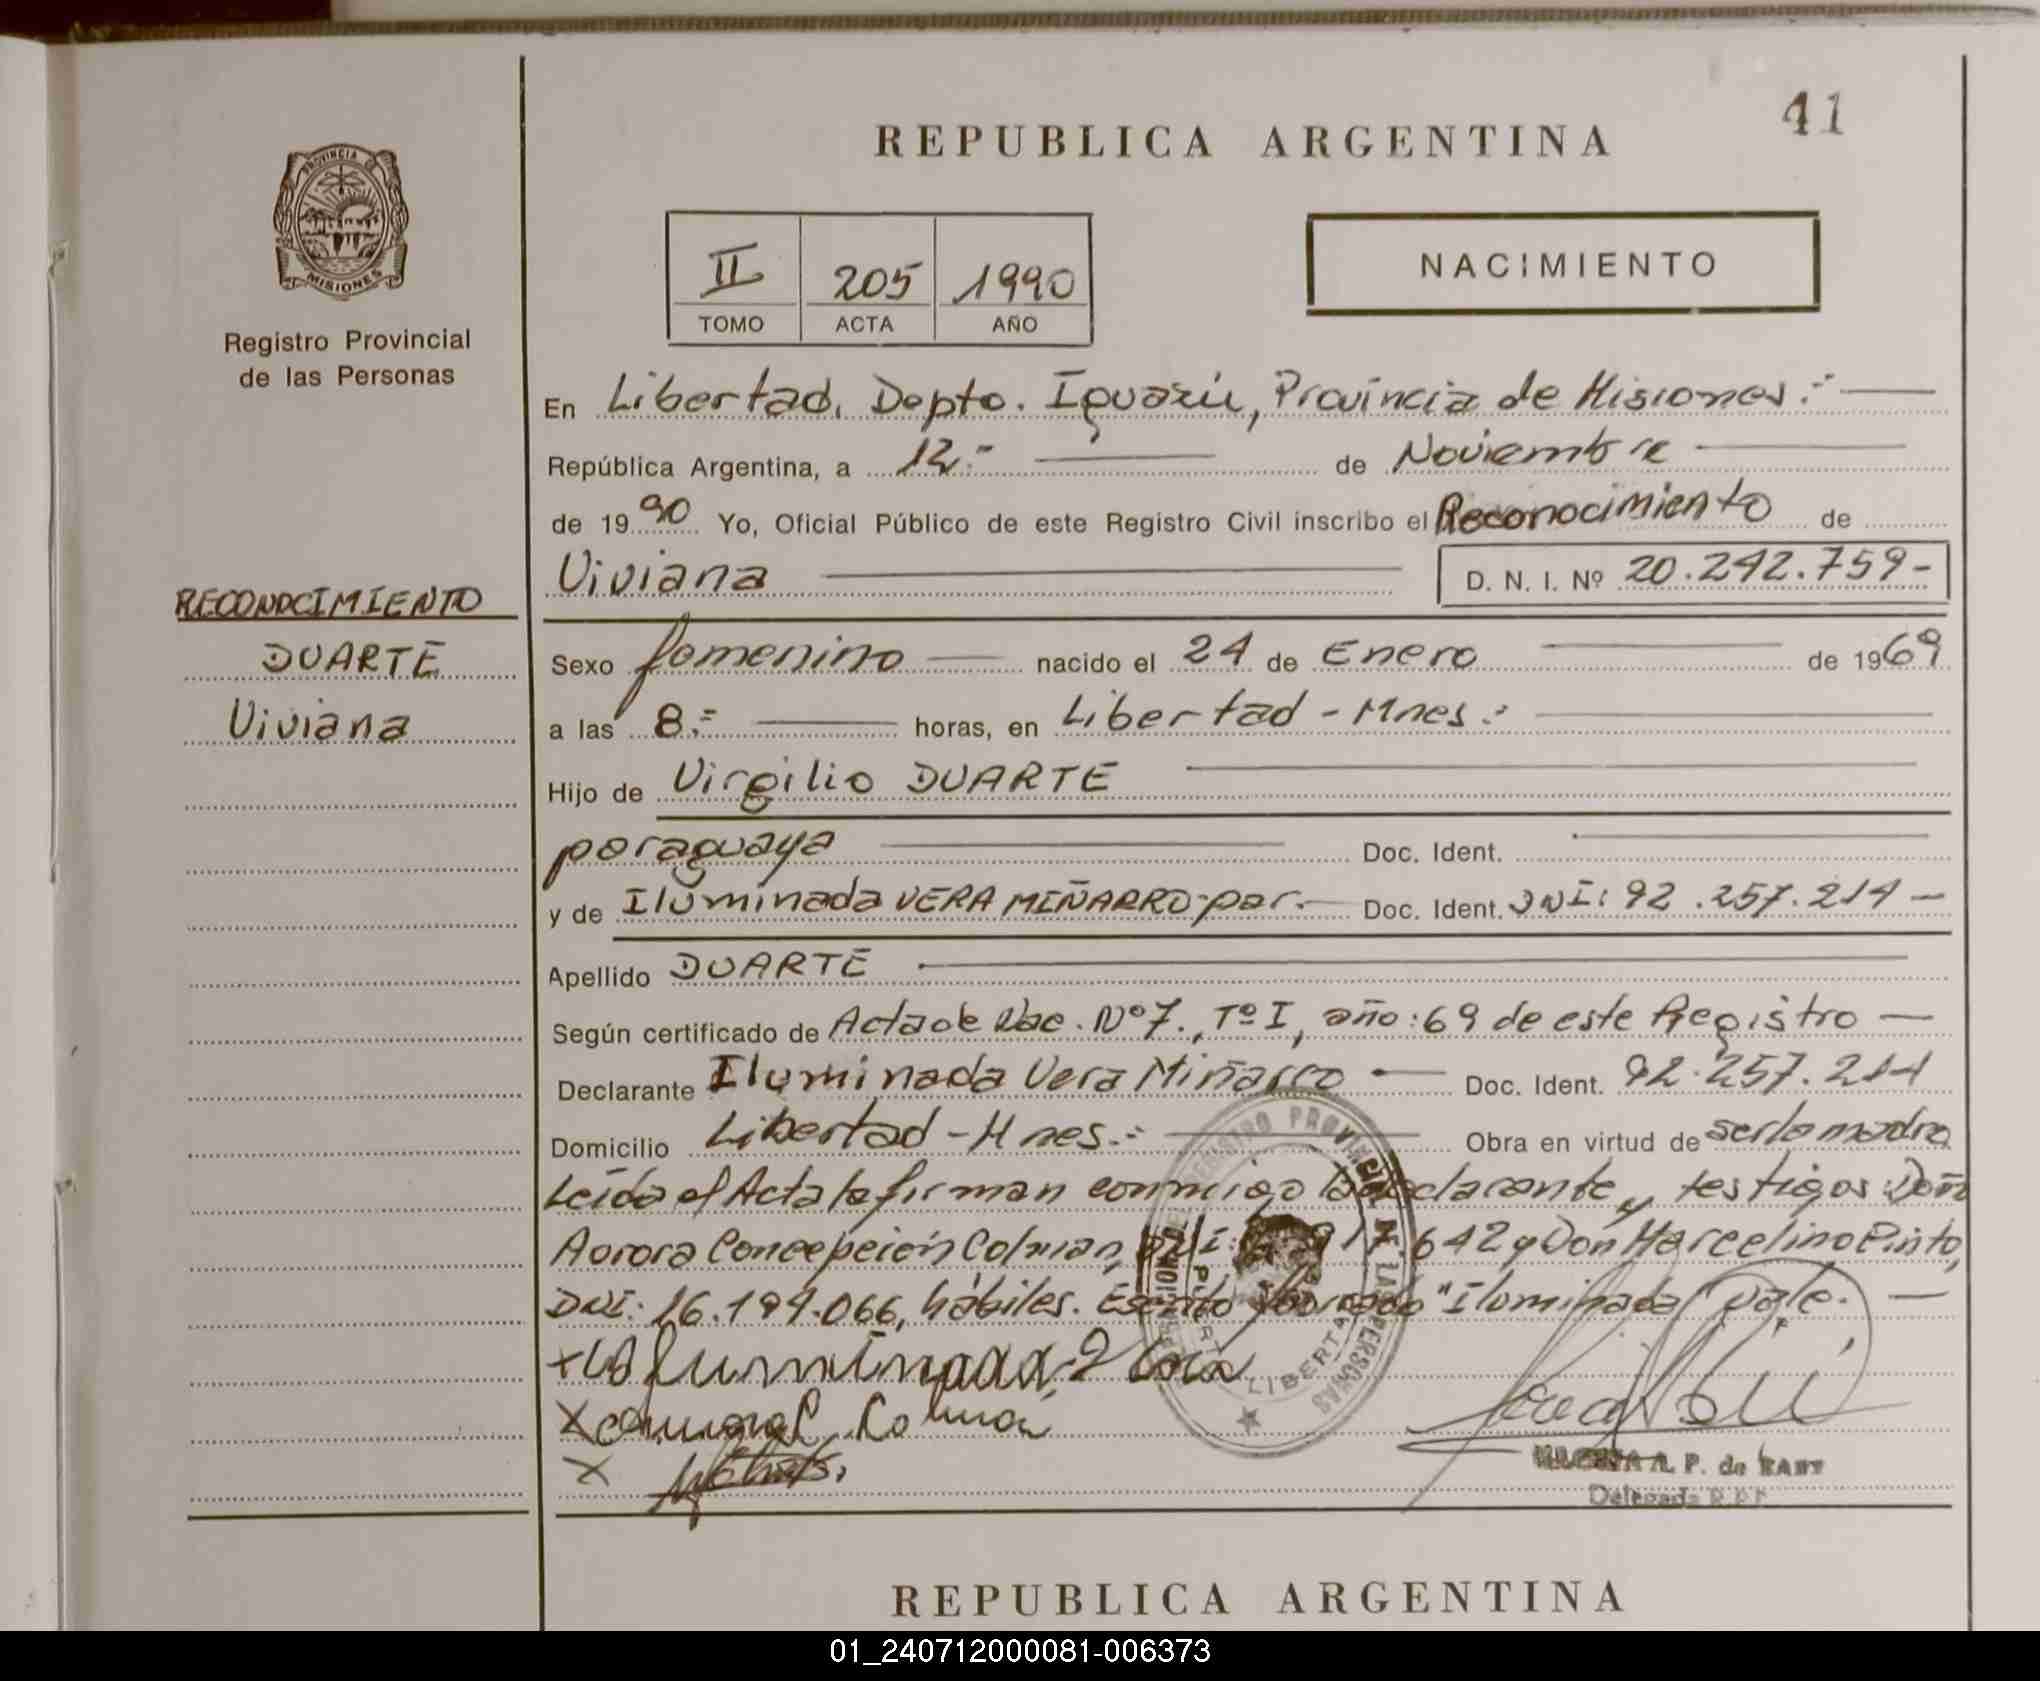 41
REPUBLICA ARGENTINA
PROVINCIA DE
MISIONES
Registro Provincial
de las Personas
II 205 1990
TOMO ACTA AÑO
NACIMIENTO
En Libertad, Depto. Iguazú, Provincia de Misiones.-
República Argentina, a 12.- de Noviembre
de 1990 Yo, Oficial Público de este Registro Civil inscribo el Reconocimiento de
Viviana D. N. I. Nº 20.242.759-
RECONOCIMIENTO
DUARTE
Viviana
Sexo femenino nacido el 24 de Enero de 1969
a las 8.= horas, en Libertad - Mnes.-
Hijo de Virgilio DUARTE
paraguaya Doc. Ident.
y de Iluminada VERA MIÑARRO-par.- Doc. Ident. DNI: 92.257.214-
Apellido DUARTE
Según certificado de Acta de Nac. Nº 7., Tº I, año: 69 de este Registro
Declarante Iluminada Vera Miñarro Doc. Ident. 92.257.214
Domicilio Libertad - Mnes.- Obra en virtud de ser la madre
Leída el Acta la firman conmigo la declarante, y testigos: Doña
Aurora Concepción Colman, DNI: 642 y Don Marcelino Pinto,
DNI: 16.194.066, hábiles. Escrito borrado "Iluminada" vale.
DEL REGISTRO PROVINCIAL DE LAS PERSONAS
LIBERTAD
x Iluminada Vera
x C. Colman
x
P. de
Delegada R.P.P.
REPUBLICA ARGENTINA
01_240712000081-006373